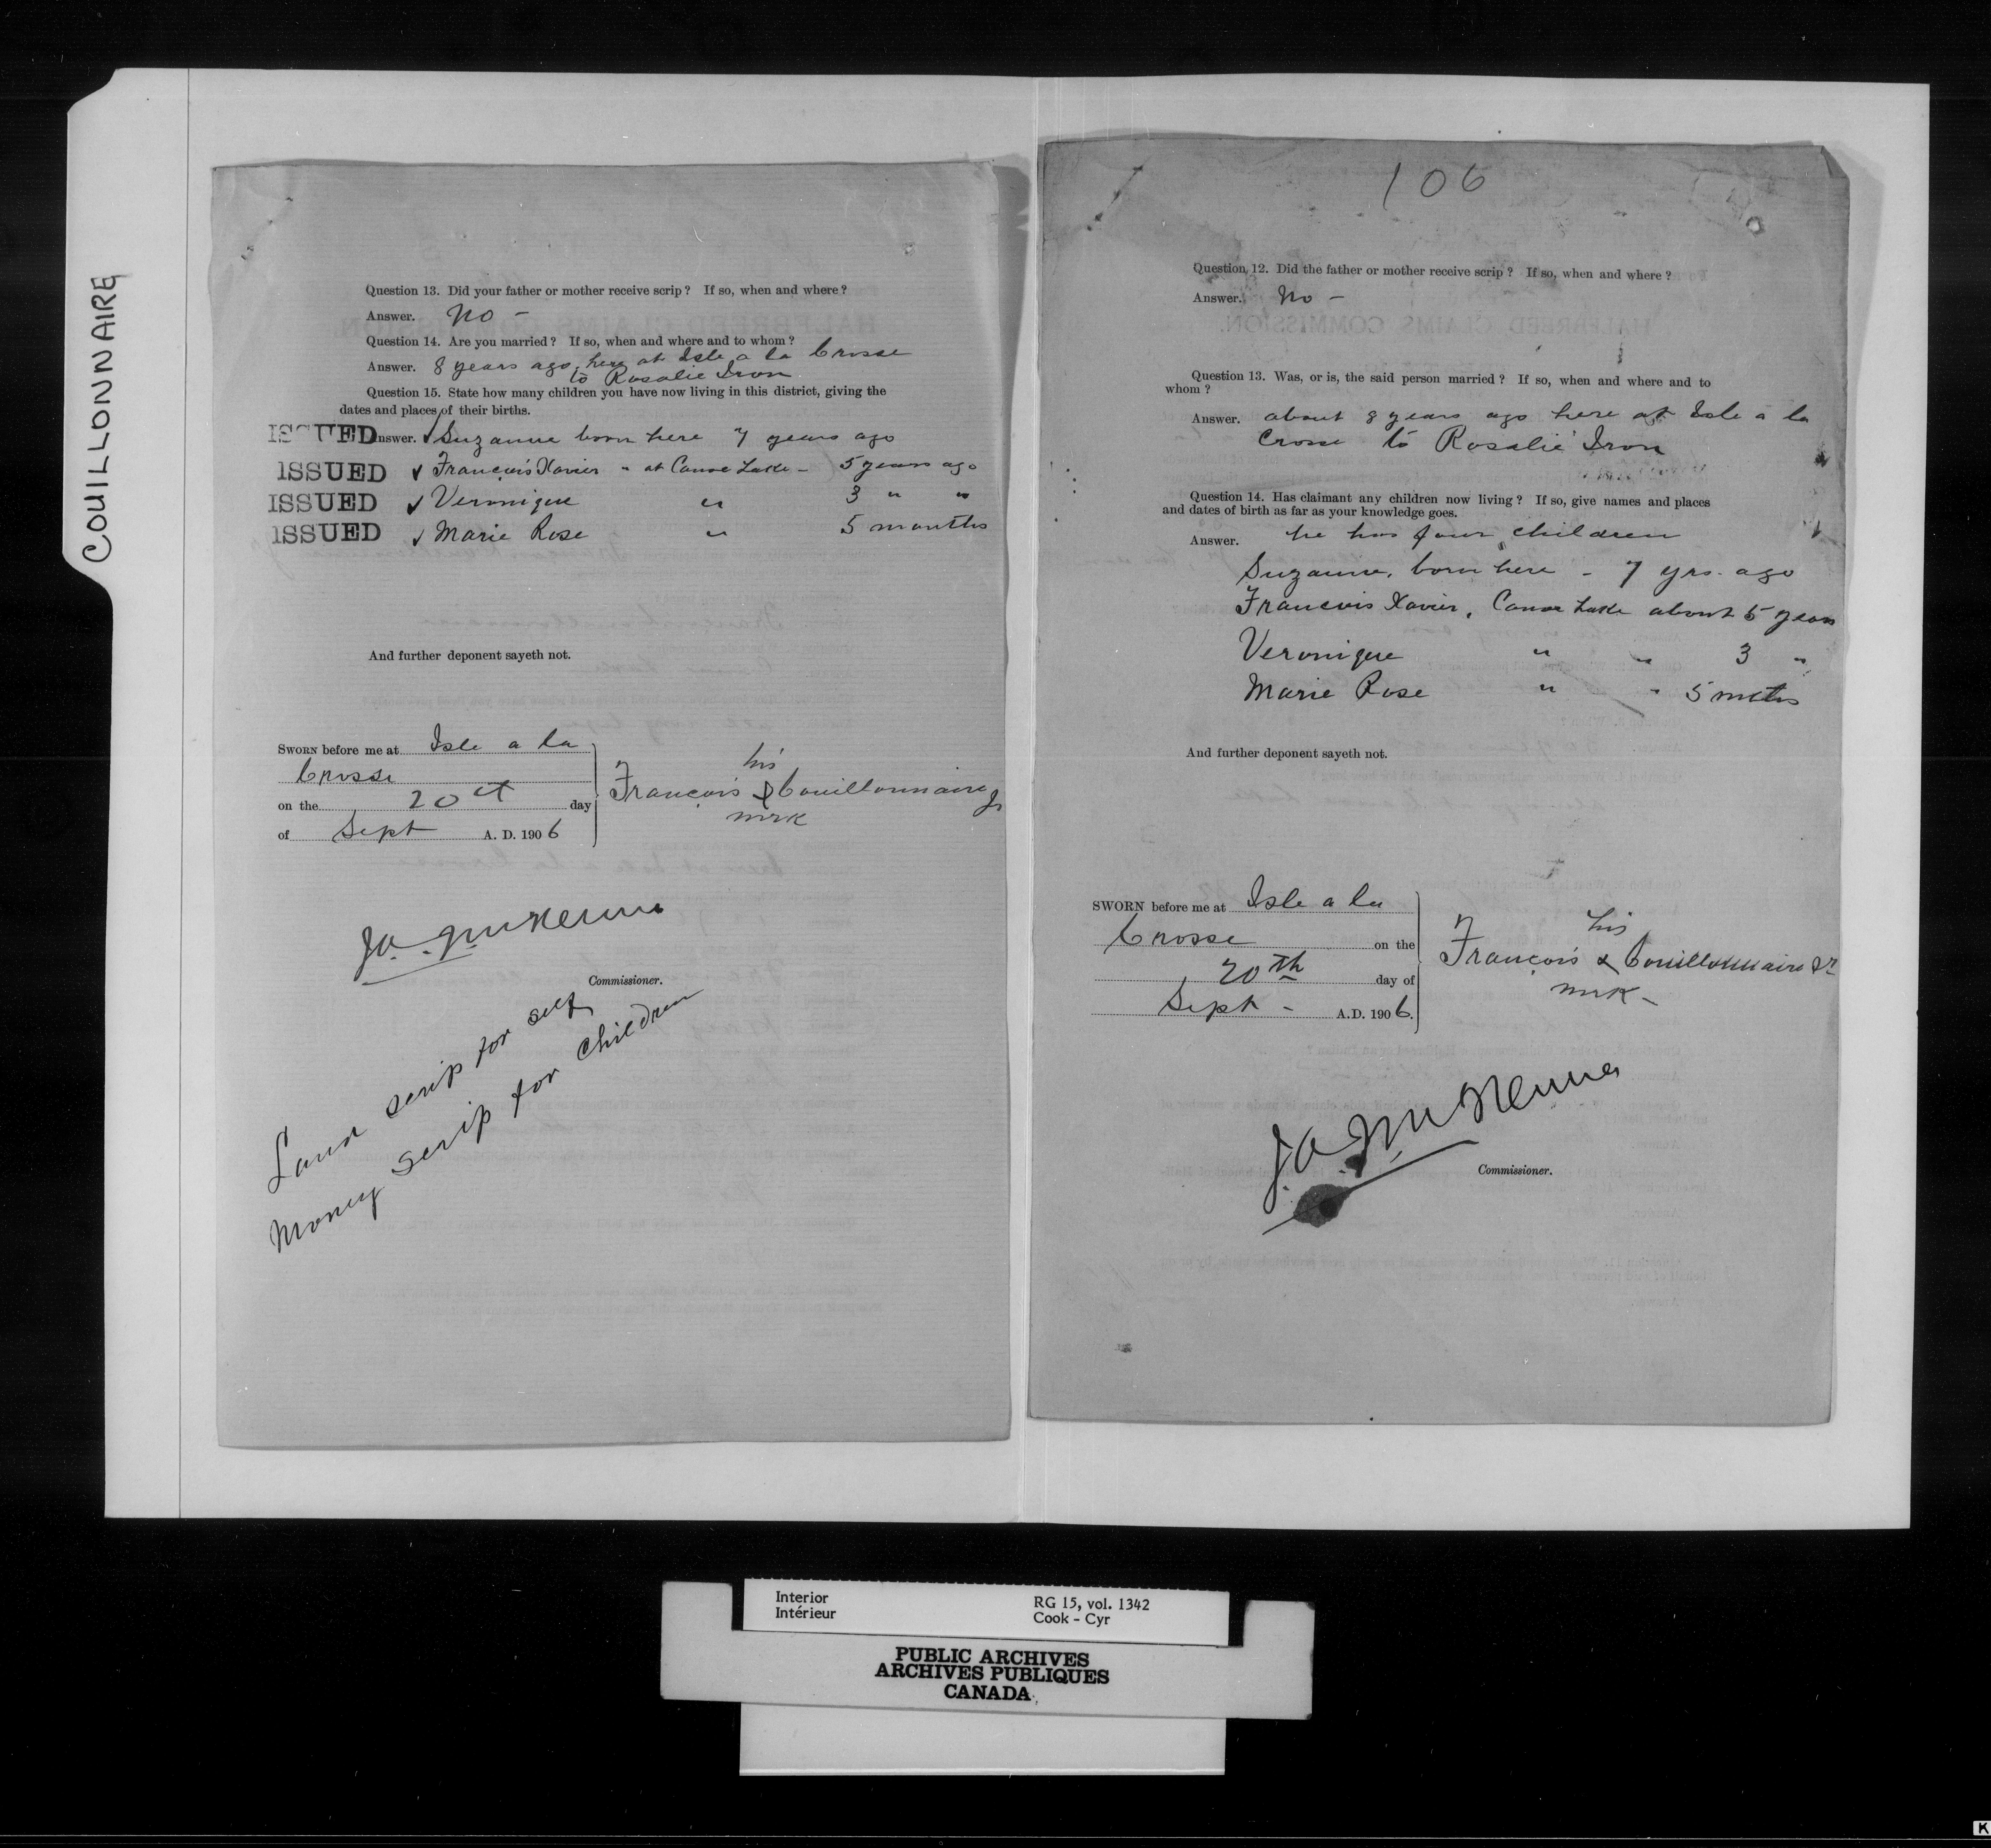 COUILLONNAIRE
Question 13. Did your father or mother receive scrip? If so, when and where?
Answer. No –
Question 14. Are you married? If so, when and where and to whom?
Answer. 8 years ago, here at Isle a la Crosse
to Rosalie Iron
Question 15. State how many children you have now living in this district, giving the
dates and places of their births.
ISSUED Answer. ✓ Suzanne born here 7 years ago
ISSUED ✓ François Xavier " at Canoe Lake – 5 years ago
ISSUED ✓ Veronique " 3 " "
ISSUED ✓ Marie Rose " 5 months
And further deponent sayeth not.
SWORN before me at Isle a la
Crosse
on the 20th day
of Sept A. D. 1906
his
François X Couillonnaire Jr
mrk
J.A. McKenna
Commissioner.
Land scrip for self
Money scrip for children
106
Question 12. Did the father or mother receive scrip? If so, when and where?
Answer. No –
HALFBREED CLAIMS COMMISSION.
Question 13. Was, or is, the said person married? If so, when and where and to
whom?
Answer. about 8 years ago here at Isle a la
Crosse to Rosalie Iron
Question 14. Has claimant any children now living? If so, give names and places
and dates of birth as far as your knowledge goes.
Answer. he has four children
Suzanne, born here – 7 yrs. ago
Francois Xavier, Canoe Lake about 5 years
Veronique " " 3 "
Marie Rose " " 5 mths
And further deponent sayeth not.
SWORN before me at Isle a la
Crosse on the
20th day of
Sept – A.D. 1906.
his
François X Couillonnaire Sr
mrk –
J.A. McKenna
Commissioner.
Interior
Intérieur
RG 15, vol. 1342
Cook - Cyr
PUBLIC ARCHIVES
ARCHIVES PUBLIQUES
CANADA
K